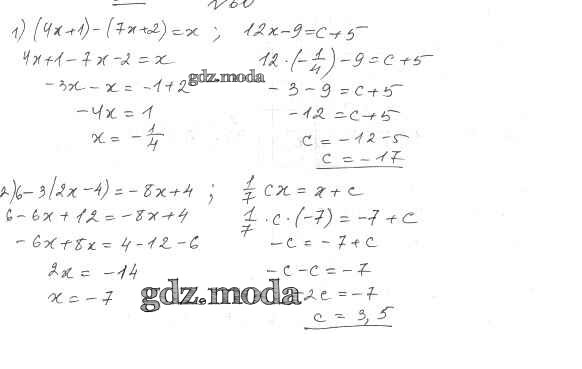 N 60
1) (4x+1)-(7x+2)=x ; 12x-9=c+5
4x+1-7x-2=x 12·(-1/4)-9=c+5
-3x-x=-1+2 gdz.moda -3-9=c+5
-4x=1 -12=c+5
x=-1/4 c=-12-5
c=-17
2) 6-3(2x-4)=-8x+4 ; 1/7 cx=x+c
6-6x+12=-8x+4 1/7·c·(-7)=-7+c
-6x+8x=4-12-6 -c=-7+c
2x=-14 -c-c=-7
x=-7 gdz.moda -2c=-7
c=3,5